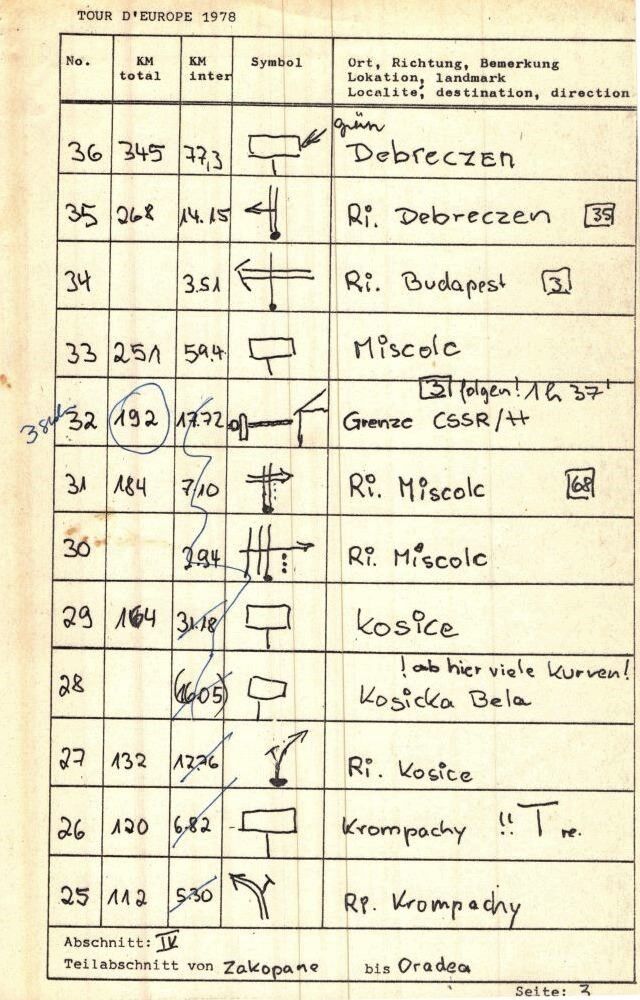 TOUR D'EUROPE 1978
No. KM total KM inter Symbol Ort, Richtung, Bemerkung
Lokation, landmark
Localité, destination, direction
grün
36 345 77,3 Debreczen
35 268 14.15 Ri. Debreczen 35
34 3.51 Ri. Budapest 3
33 251 59.4 Miscolc
3 folgen! 1h 37'
32 192 17.72 Grenze CSSR/H
31 184 7.10 Ri. Miscolc 68
30 2.94 Ri. Miscolc
29 164 31.18 Kosice
! ab hier viele Kurven!
28 (16.05) Kosicka Bela
27 132 12.76 Ri. Kosice
26 120 6.82 Krompachy !! T re.
25 112 5.30 Ri. Krompachy
Abschnitt: IV
Teilabschnitt von Zakopane bis Oradea
Seite: 3